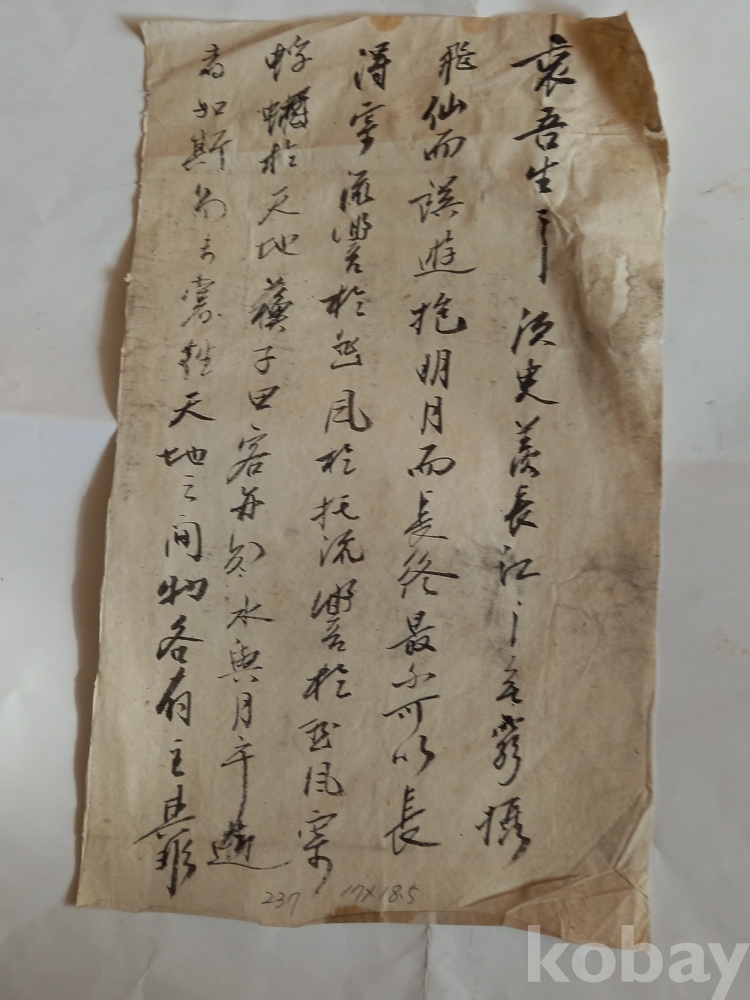 哀吾生之須臾羨長江之無窮挾
飛仙而遨遊抱明月而長終最不可以長
得寄流響於悲風於托流響於悲風寄
蜉蝣於天地蘇子曰客毋知水與月乎逝
者如斯而未嘗往天地之間物各有主其
237 17×18.5
kobay